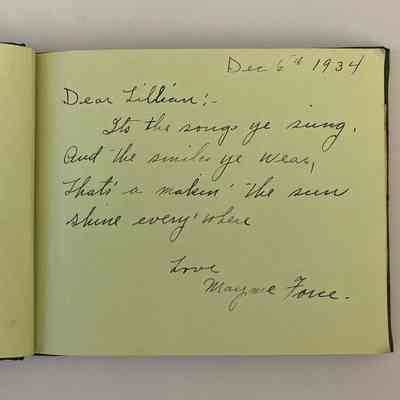 Dec 6th 1934
Dear Lillian:-
Its the songs ye sing,
And the smiles ye wear,
That's a makin' the sun
shine every'where
Love
Mayme Force.